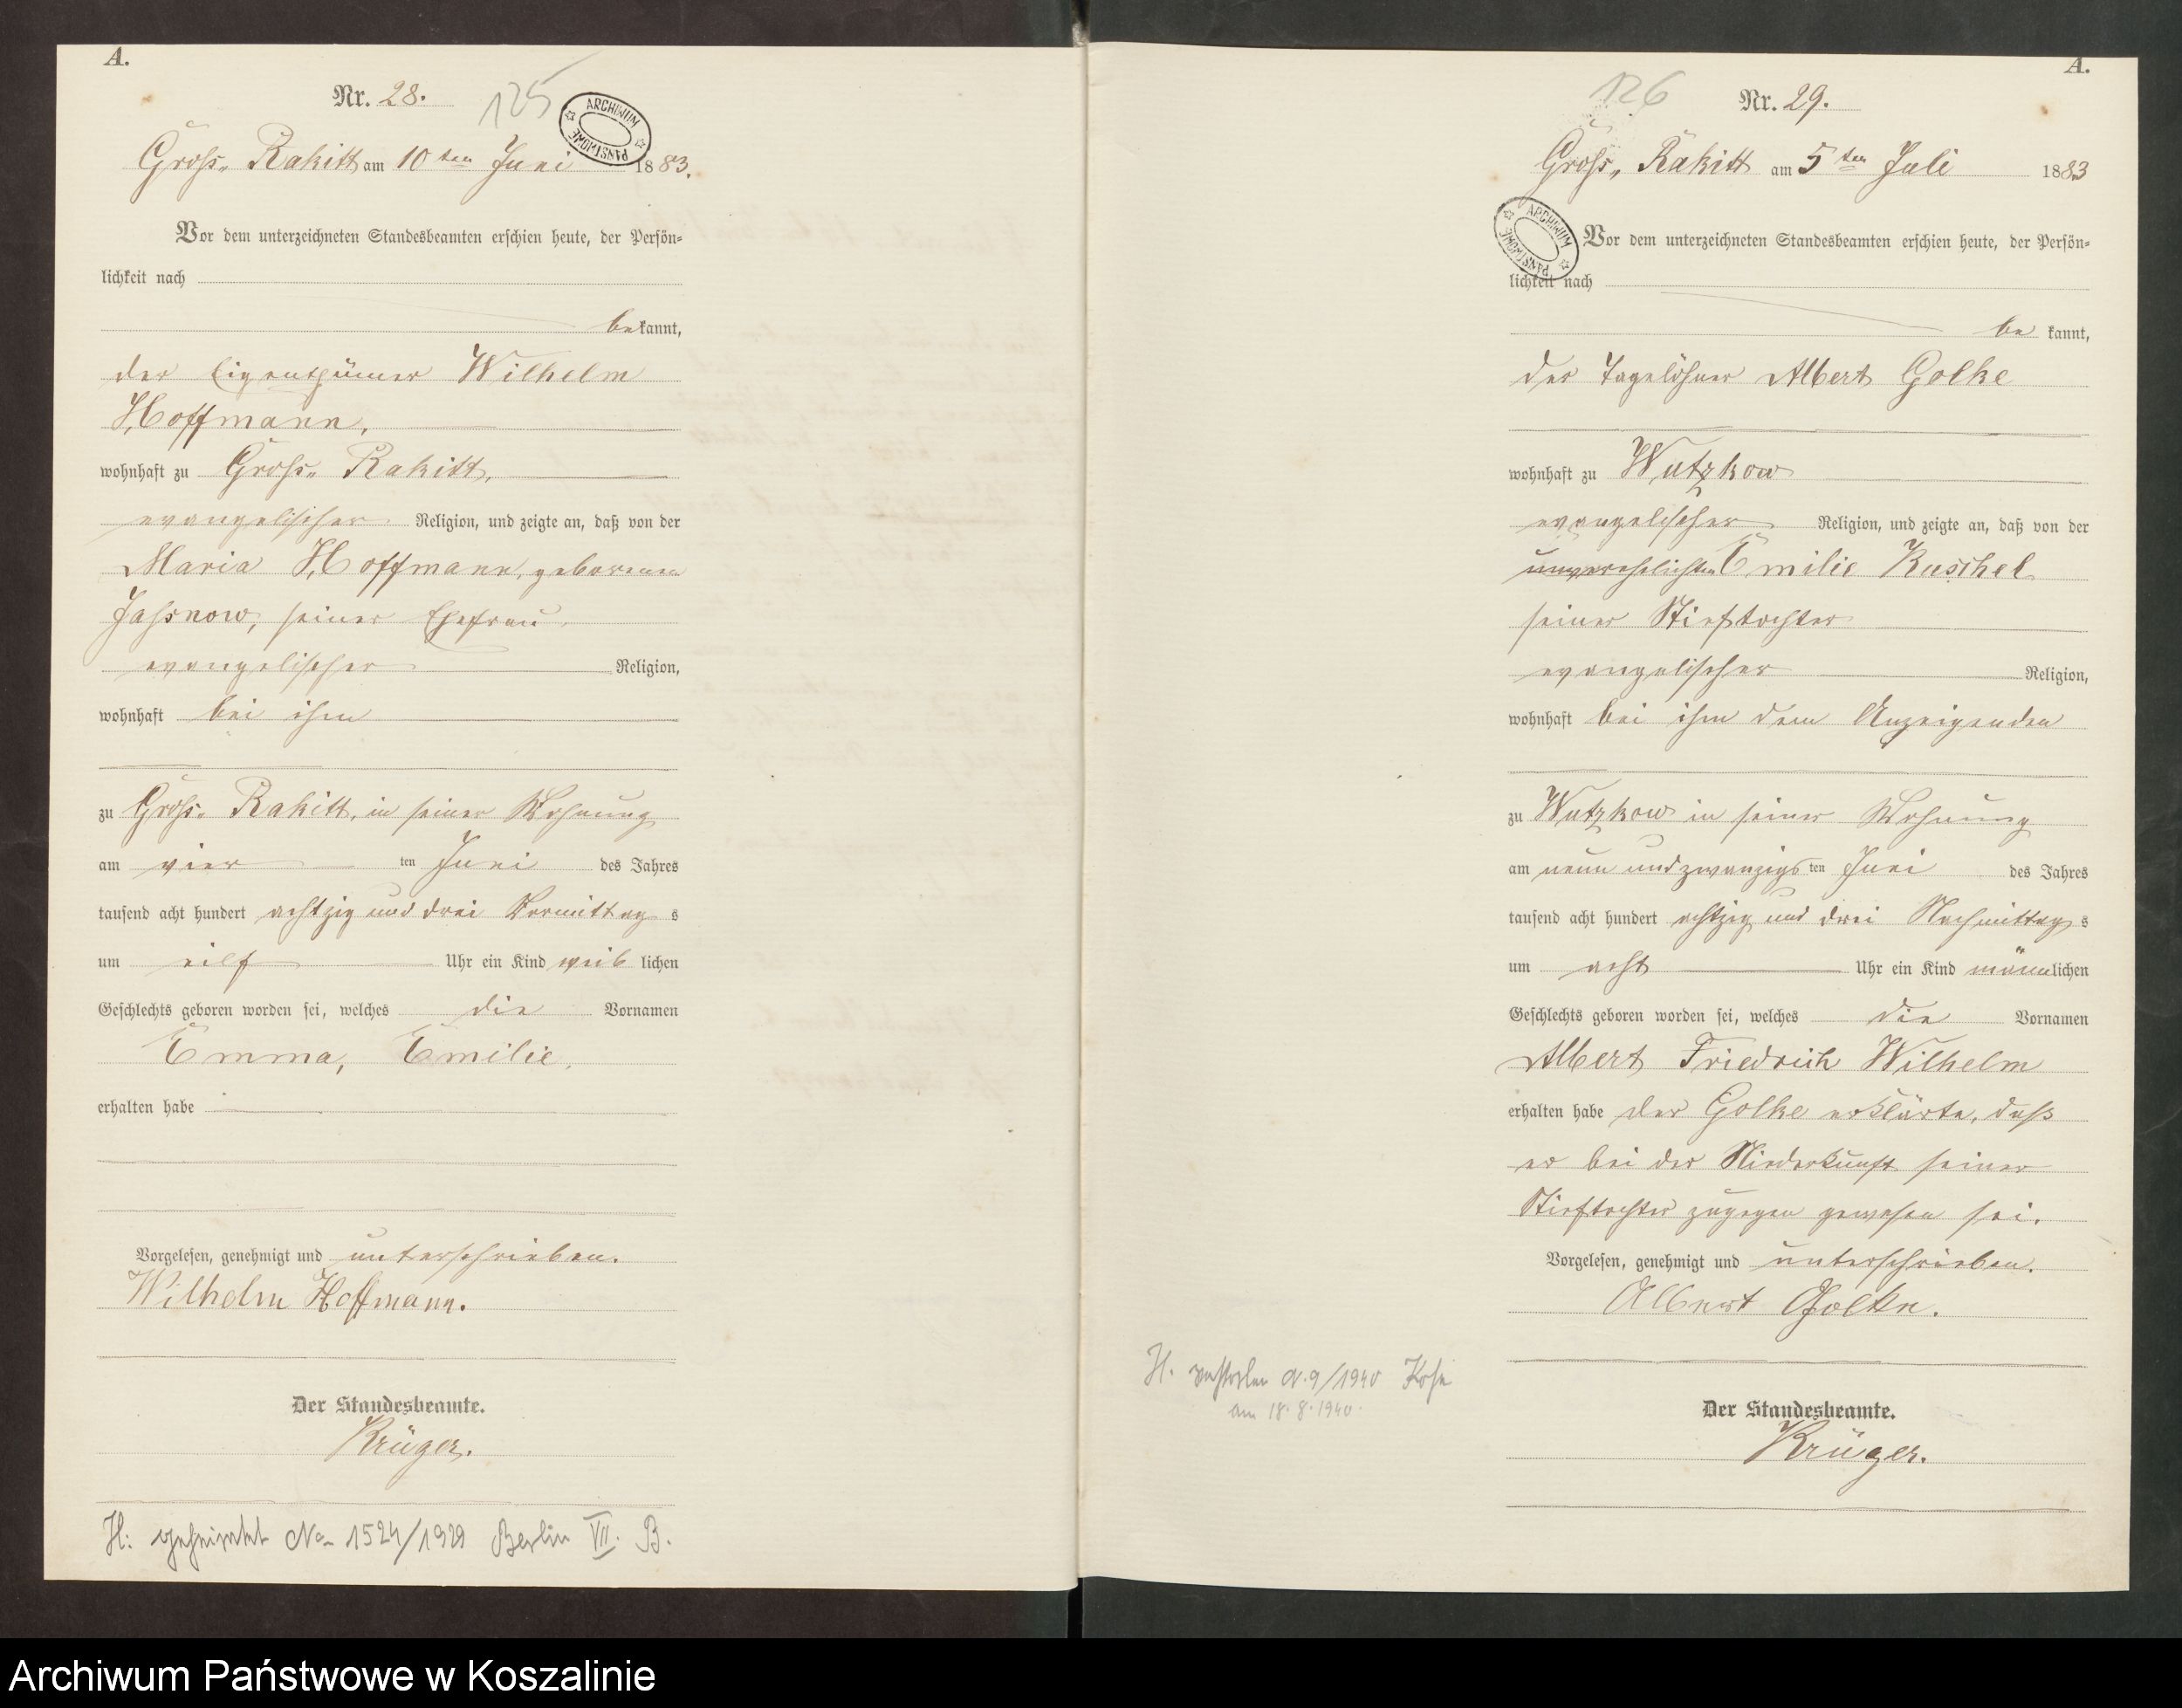 A.
Nr. 28.
125
ARCHIWUM PAŃSTWOWE
Gross. Rakitt am 10ten Juni 1883.
Vor dem unterzeichneten Standesbeamten erschien heute, der Persön-
lichkeit nach
bekannt,
der Eigenthümer Wilhelm
Hoffmann,
wohnhaft zu Gross. Rakitt,
evangelischer Religion, und zeigte an, daß von der
Maria Hoffmann, geborenen
Jassnow, seiner Ehefrau,
evangelischer Religion,
wohnhaft bei ihm
zu Gross. Rakitt, in seiner Wohnung
am vier ten Juni des Jahres
tausend acht hundert achtzig und drei Vormittag s
um eilf Uhr ein Kind weib lichen
Geschlechts geboren worden sei, welches die Vornamen
Emma, Emilie,
erhalten habe
Vorgelesen, genehmigt und unterschrieben.
Wilhelm Hoffmann.
Der Standesbeamte.
Krüger.
H: geheiratet No 1524/1929 Berlin VII. B.
A.
126
Nr. 29.
Gross, Rakitt am 5ten Juli 1883
ARCHIWUM PAŃSTWOWE
Vor dem unterzeichneten Standesbeamten erschien heute, der Persön-
lichkeit nach
be kannt,
der Tagelöhner Albert Golke
wohnhaft zu Wutzkow
evangelischer Religion, und zeigte an, daß von der
unverehelichten Emilie Ruschel
seiner Stieftochter
evangelischer Religion,
wohnhaft bei ihm dem Anzeigenden
zu Wutzkow in seiner Wohnung
am neun und zwanzigs ten Juni des Jahres
tausend acht hundert achtzig und drei Nachmittag s
um acht Uhr ein Kind männlichen
Geschlechts geboren worden sei, welches die Vornamen
Albert Friedrich Wilhelm
erhalten habe der Golke erklärte, daß
er bei der Niederkunft seiner
Stieftochter zugegen gewesen sei.
Vorgelesen, genehmigt und unterschrieben.
Albert Golke.
H. verstorben 9/1940
am 18.8.1940.
Der Standesbeamte.
Krüger.
Archiwum Państwowe w Koszalinie